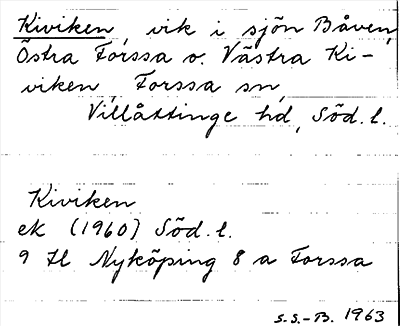 Kiviken, vik i sjön Båven,
Östra Forssa o. Västra Ki-
viken, Forssa sn,
Villåttinge hd, Söd. l.
Kiviken
ek (1960) Söd. l.
9 H Nyköping 8 a Forssa
S.S.-B. 1963